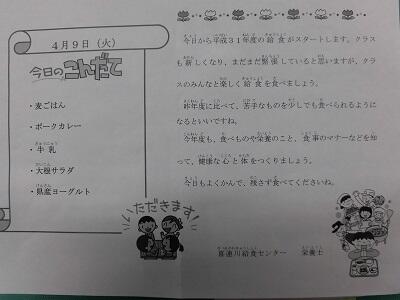 4月9日（火）
今日のこんだて
・麦ごはん
・ポークカレー
・牛乳
・大根サラダ
・県産ヨーグルト
いただきます
今日から平成３１年度の給食がスタートします。クラス
も新しくなり、まだまだ緊張していると思いますが、クラ
スのみんなと楽しく給食を食べましょう。
昨年度に比べて、苦手なものを少しでも食べられるように
なるといいですね。
今年度も、食べものや栄養のこと、食事のマナーなどを知
って、健康な心と体をつくりましょう。
今日もよくかんで、残さず食べてくださいね。
喜連川給食センター　栄養士